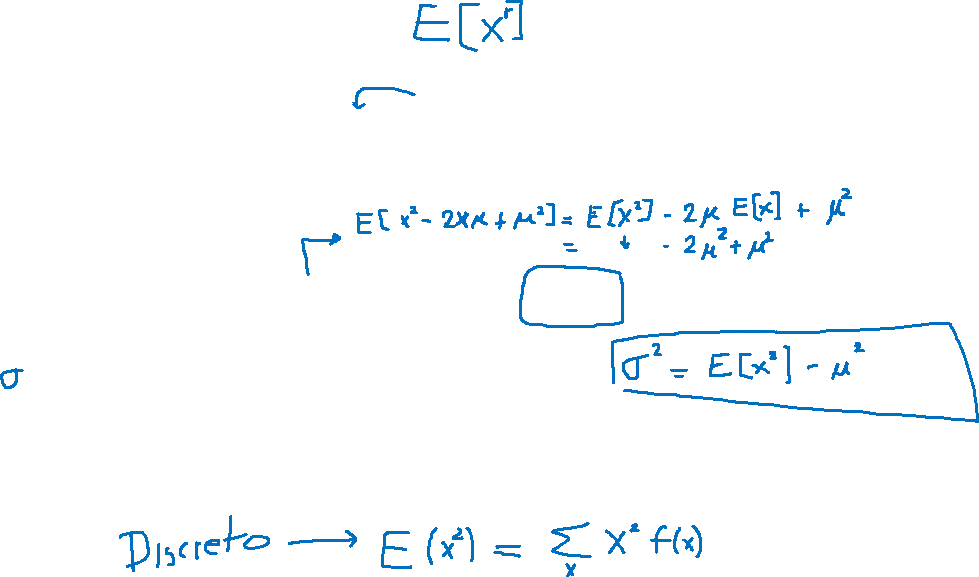 E[x^r]
E[x² - 2xμ + μ²] = E[x²] - 2μ E[x] + μ²
= ↓ - 2μ² + μ²
σ² = E[x²] - μ²
σ
Discreto → E(x²) = Σₓ x² f(x)